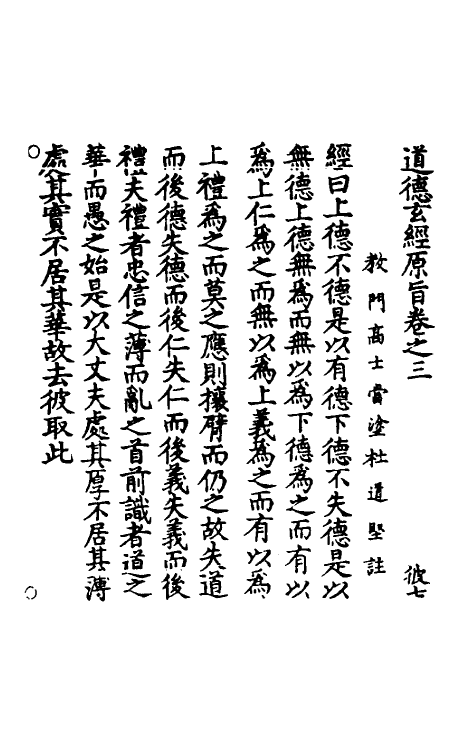 道德玄經原旨卷之三 彼七
教門高士當塗杜道堅註
經曰上德不德是以有德下德不失德是以
無德上德無爲而無以爲下德爲之而有以
爲上仁爲之而無以爲上義爲之而有以爲
上禮爲之而莫之應則攘臂而仍之故失道
而後德失德而後仁失仁而後義失義而後
禮夫禮者忠信之薄而亂之首前識者道之
華而愚之始是以大丈夫處其厚不居其薄
處其實不居其華故去彼取此